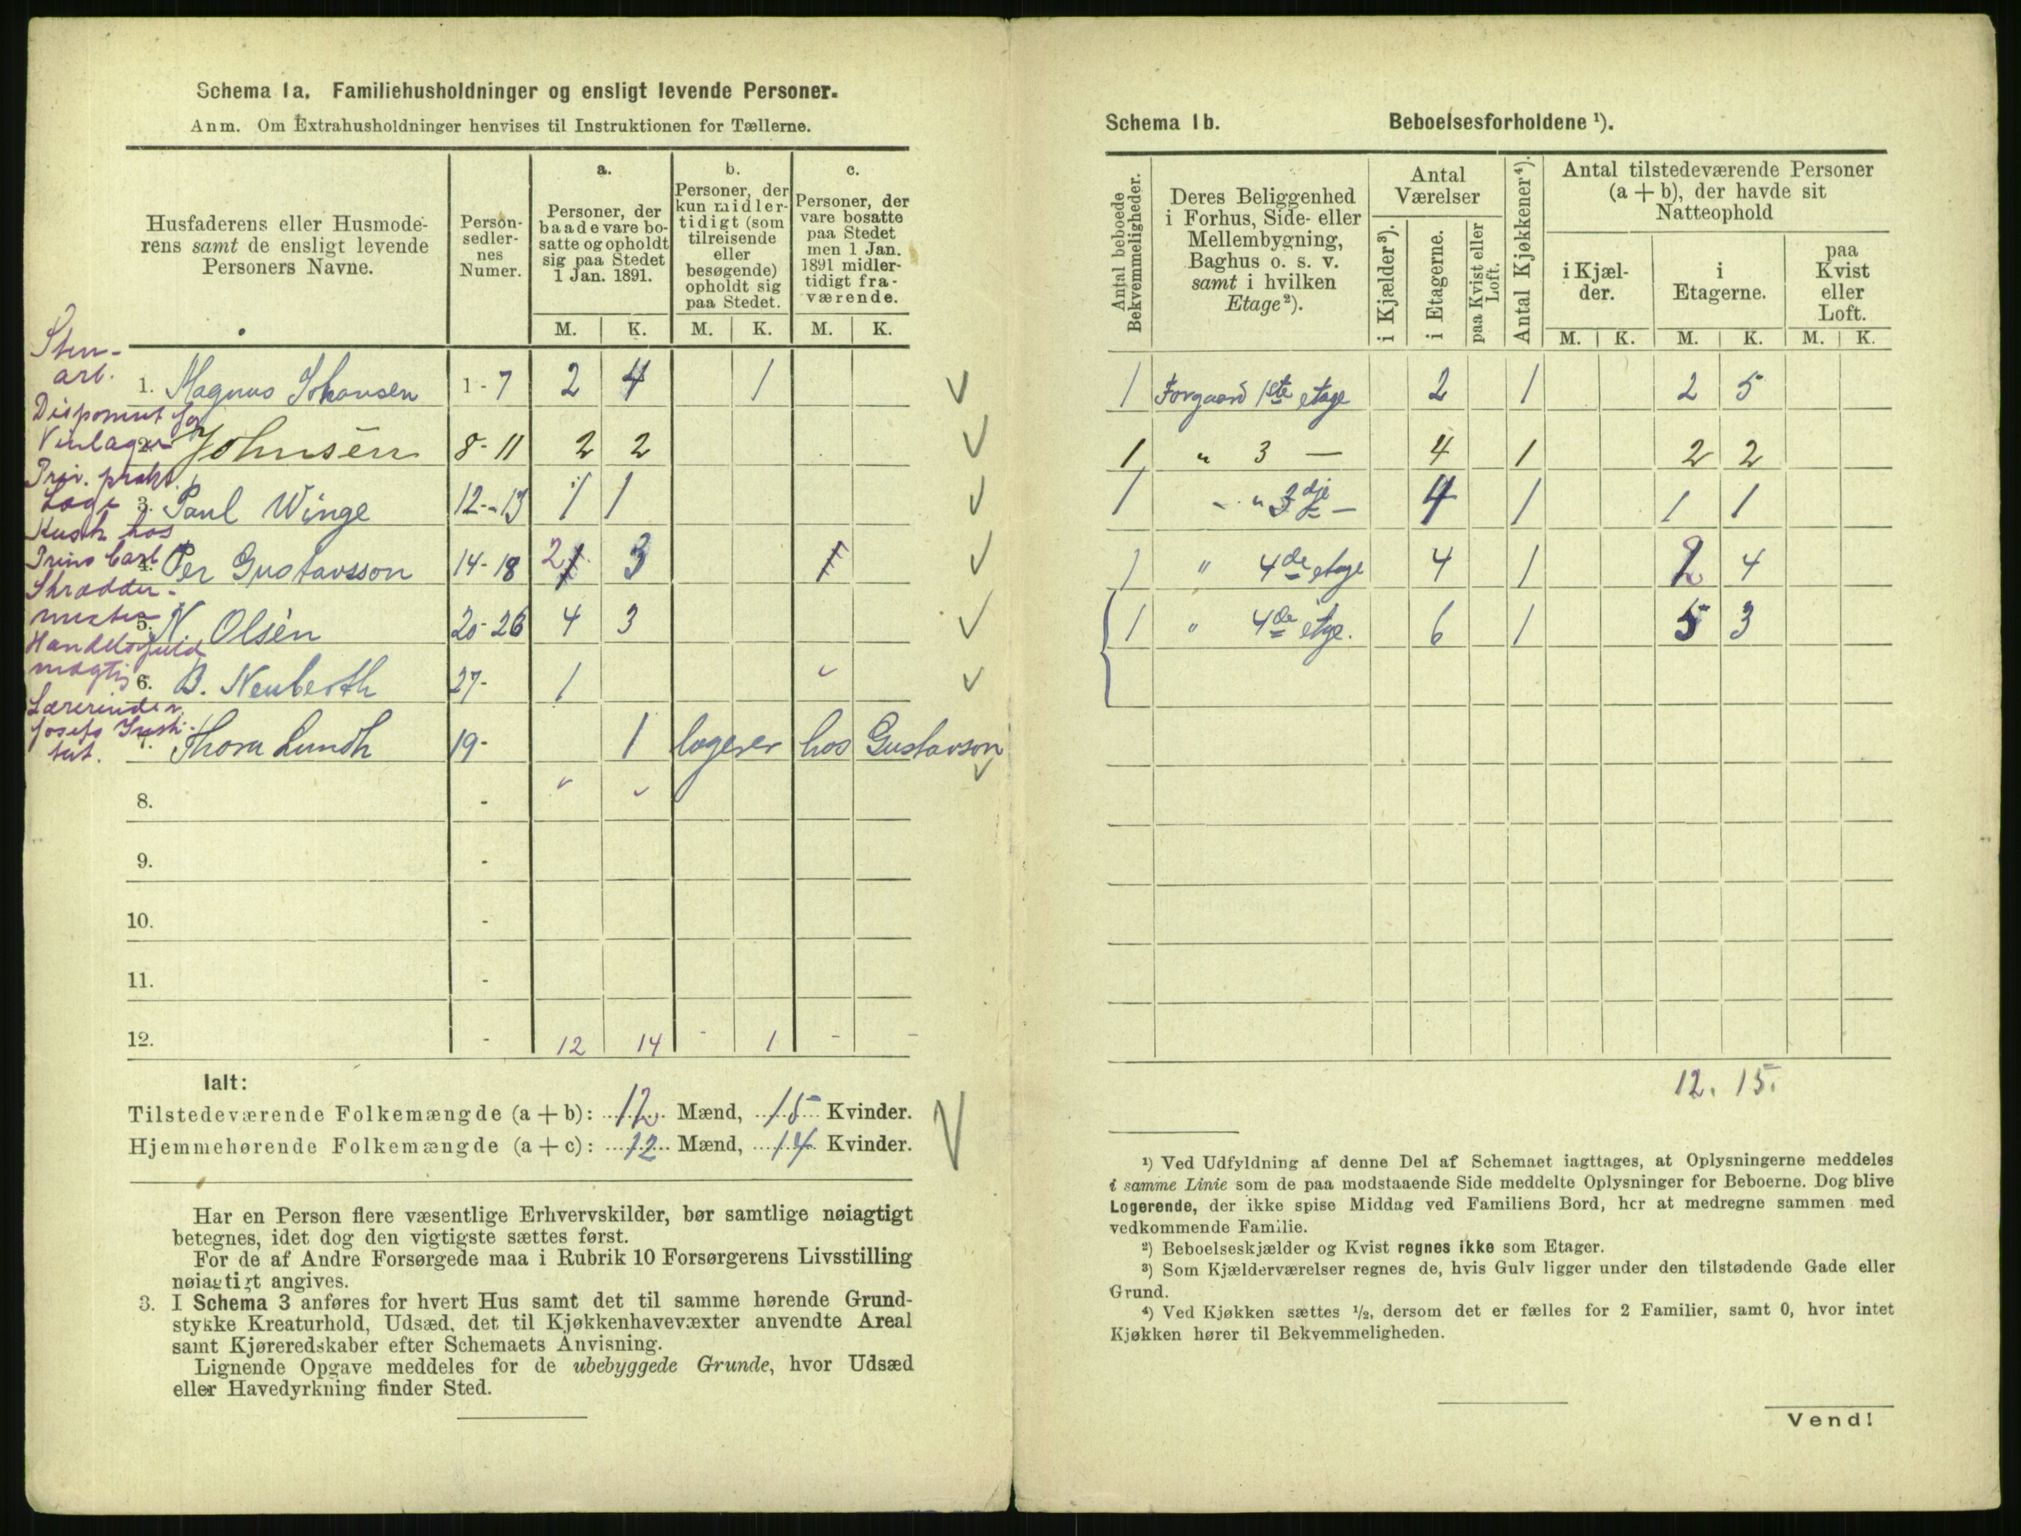 Schema 1a. Familiehusholdninger og ensligt levende Personer.
Anm. Om Extrahusholdninger henvises til Instruktionen for Tællerne.
Husfaderens eller Husmoderens samt de ensligt levende Personers Navne.
Person-sedlernes Numer.
a. Personer, der baade vare bosatte og opholdt sig paa Stedet 1 Jan. 1891.
b. Personer, der kun midlertidigt (som tilreisende eller besøgende) opholdt sig paa Stedet.
c. Personer, der vare bosatte paa Stedet men 1 Jan. 1891 midlertidigt fraværende.
M. K. M. K. M. K.
Sten-arb.
1. Magnus Johansen 1-7 2 4 1
Disponent for Vinlager
2. Johnsen 8-11 2 2
Priv. prakt. Læge
3. Paul Winge 12-13 1 1
Kusk hos Prins Carl
4. Per Gustavsson 14-18 2 3 1
Skrædder-mester
5. N. Olsèn 20-26 4 3
Handelsfuldmægtig
6. B. Neuberth 27- 1
Lærerinde v. Josefs Institut.
7. Thora Lundh 19- 1 logerer hos Gustavson
8. -
9. -
10. -
11. -
12. - 12 14 - 1 - -
Ialt:
Tilstedeværende Folkemængde (a + b): 12 Mænd, 15 Kvinder.
Hjemmehørende Folkemængde (a + c): 12 Mænd, 14 Kvinder.
Har en Person flere væsentlige Erhvervskilder, bør samtlige nøiagtigt
betegnes, idet dog den vigtigste sættes først.
For de af Andre Forsørgede maa i Rubrik 10 Forsørgerens Livsstilling
nøiagtigt angives.
3. I Schema 3 anføres for hvert Hus samt det til samme hørende Grund-
stykke Kreaturhold, Udsæd, det til Kjøkkenhavevæxter anvendte Areal
samt Kjøreredskaber efter Schemaets Anvisning.
Lignende Opgave meddeles for de ubebyggede Grunde, hvor Udsæd
eller Havedyrkning finder Sted.
Schema 1b. Beboelsesforholdene ¹).
Antal beboede Bekvemmeligheder.
Deres Beliggenhed i Forhus, Side- eller Mellembygning, Baghus o. s. v. samt i hvilken Etage ²).
Antal Værelser
i Kjælder ³).
i Etagerne.
paa Kvist eller Loft.
Antal Kjøkkener ⁴).
Antal tilstedeværende Personer (a + b), der havde sit Natteophold
i Kjælder.
i Etagerne.
paa Kvist eller Loft.
M. K. M. K. M. K.
1 Forgaard 1ste etage 2 1 2 5
1 " 3 — 4 1 2 2
1 - " 3dje — 4 1 1 1
1 " 4de etage 4 1 2 4
1 " 4de etge. 6 1 5 3
12. 15.
¹) Ved Udfyldning af denne Del af Schemaet iagttages, at Oplysningerne meddeles
i samme Linie som de paa modstaaende Side meddelte Oplysninger for Beboerne. Dog blive
Logerende, der ikke spise Middag ved Familiens Bord, her at medregne sammen med
vedkommende Familie.
²) Beboelseskjælder og Kvist regnes ikke som Etager.
³) Som Kjælderværelser regnes de, hvis Gulv ligger under den tilstødende Gade eller
Grund.
⁴) Ved Kjøkken sættes ½, dersom det er fælles for 2 Familier, samt 0, hvor intet
Kjøkken hører til Bekvemmeligheden.
Vend!